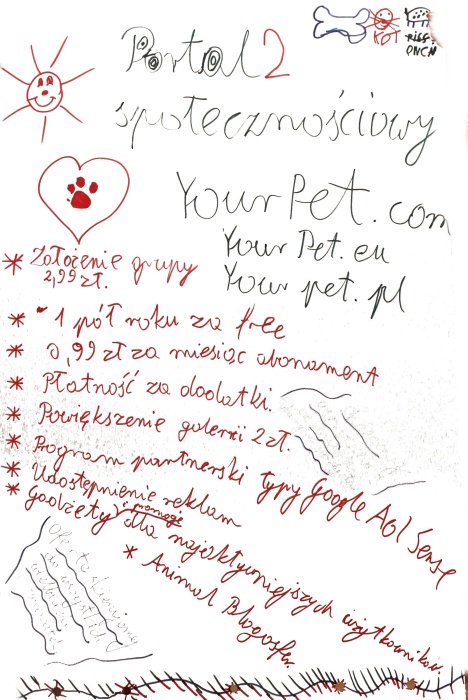 KOT
Portal 2
społecznościowy
YourPet.com
YourPet.eu
Your pet.pl
* Założenie grupy
2,99 zł.
* 1 pół roku za free
* 0,99 zł za miesiąc abonament
* Płatność za dodatki.
* Powiększenie galerii 2 zł.
* Program partnerski typy Google Ad Sense
* Udostępnienie reklam
* gadżety i promocje dla najaktywniejszych użytkowników
* Animal Blogosfer